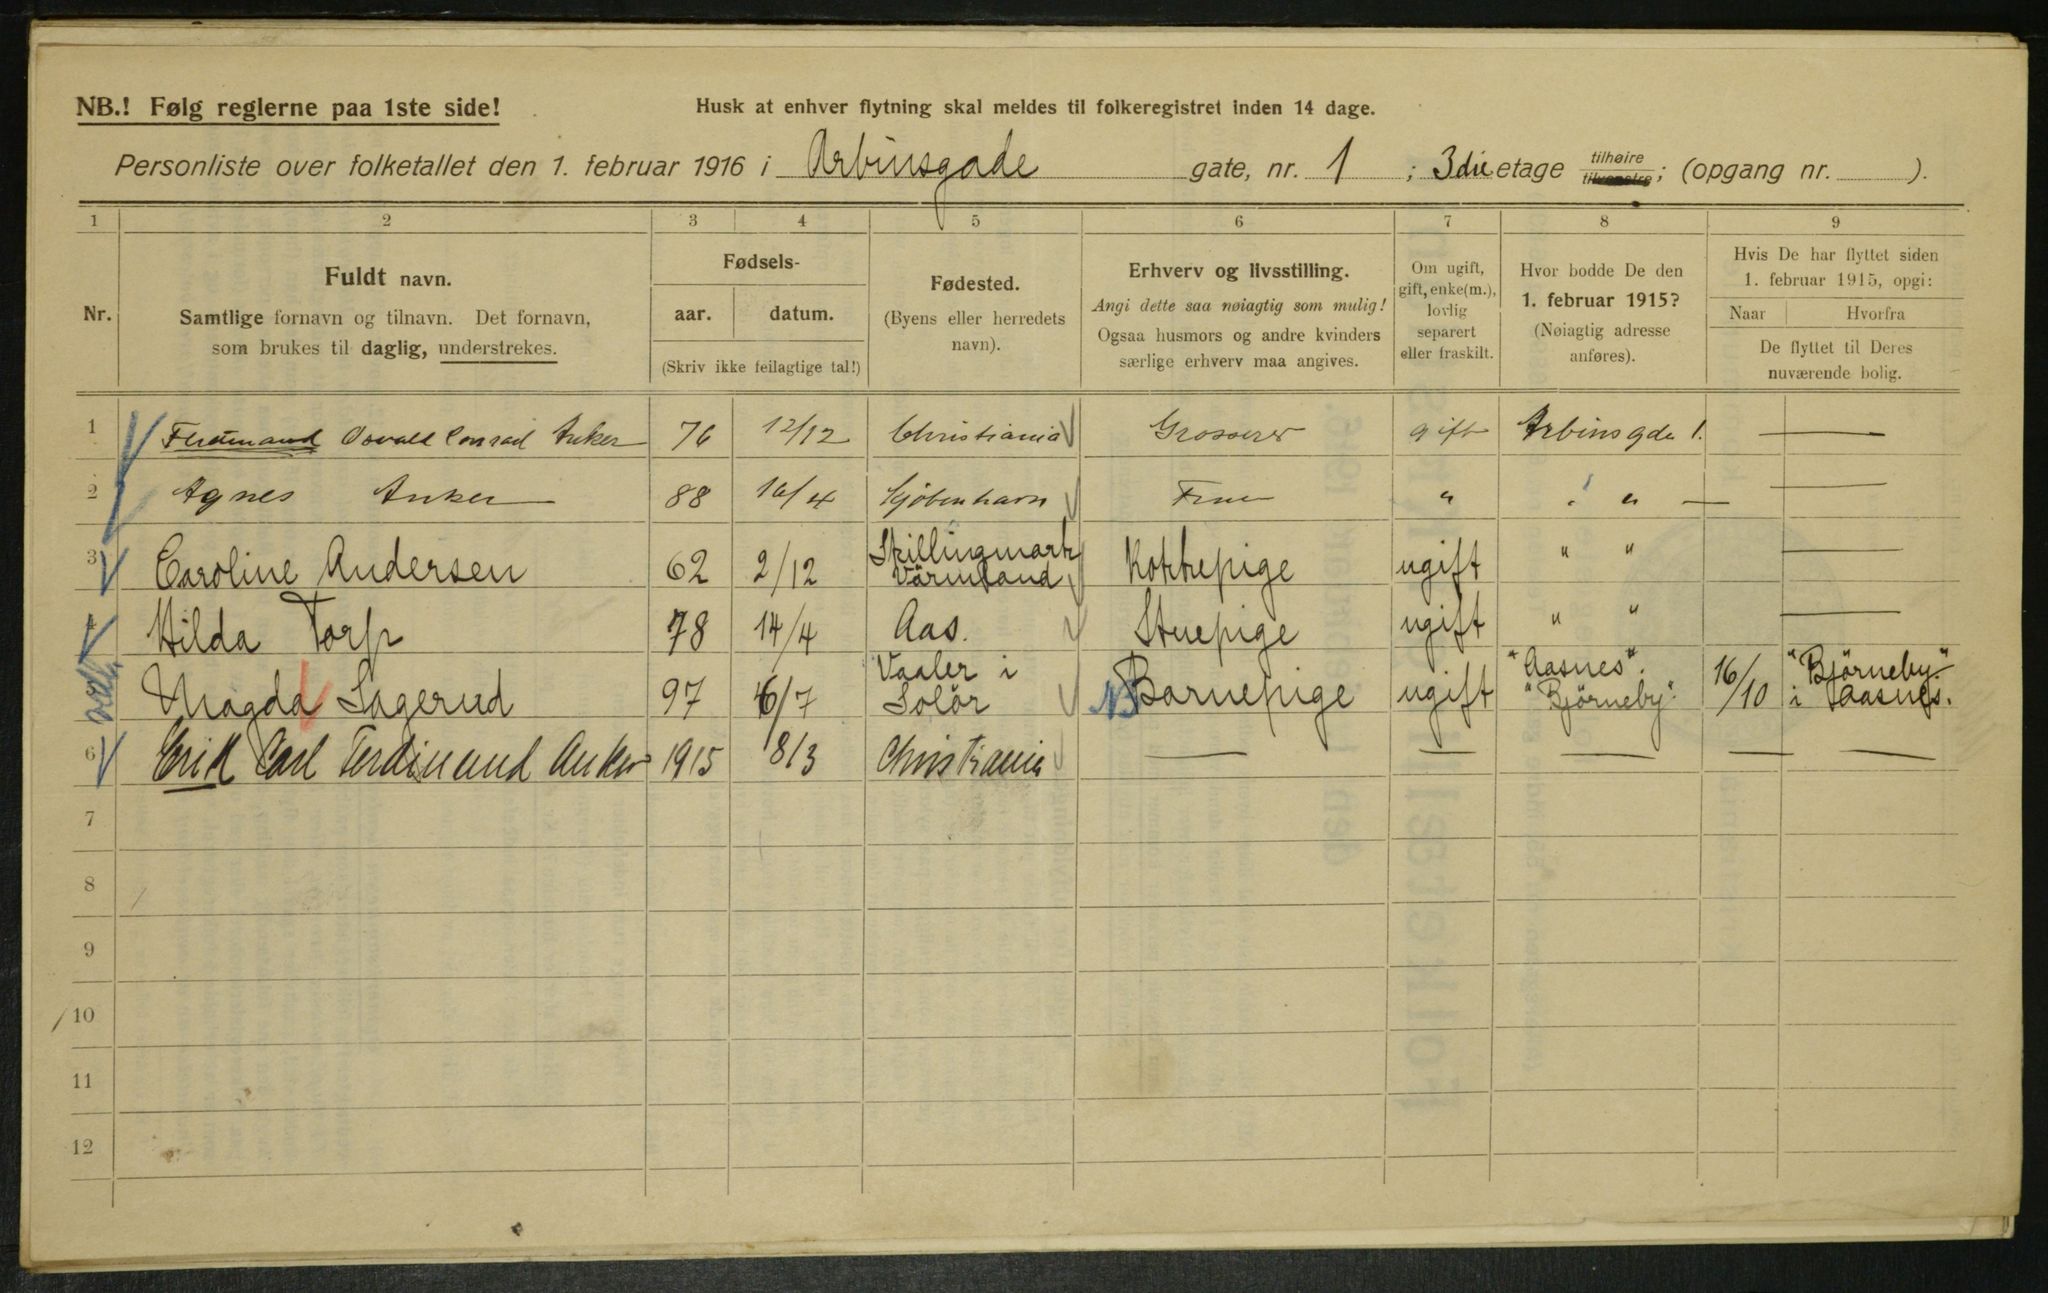 NB.! Følg reglerne paa 1ste side!
Husk at enhver flytning skal meldes til folkeregistret inden 14 dage.
Personliste over folketallet den 1. februar 1916 i Arbinsgade gate, nr. 1 ; 3die etage tilhøire tilvenstre; (opgang nr. ).
1 2 3 4 5 6 7 8 9
Nr.
Fuldt navn.
Samtlige fornavn og tilnavn. Det fornavn,
som brukes til daglig, understrekes.
Fødsels-
aar. datum.
(Skriv ikke feilagtige tal!)
Fødested.
(Byens eller herredets
navn).
Erhverv og livsstilling.
Angi dette saa nøiagtig som mulig!
Ogsaa husmors og andre kvinders
særlige erhverv maa angives.
Om ugift,
gift, enke(m.),
lovlig
separert
eller fraskilt.
Hvor bodde De den
1. februar 1915?
(Nøiagtig adresse
anføres).
Hvis De har flyttet siden
1. februar 1915, opgi:
Naar Hvorfra
De flyttet til Deres
nuværende bolig.
1 Ferdinand Osvald Conrad Anker 76 12/12 Christiania Grosserer gift Arbinsgde 1. —
2 Agnes Anker 88 16/4 Kjøbenhavn Frue " " " — —
3 Caroline Andersen 62 2/12 Skillingmark Värmland Kokkepige ugift " " —
4 Hilda Torp 78 14/4 Aas. Stuepige ugift " " —
Magda Sagerud 97 6/7 Vaaler i Solör Barnepige ugift "Aasnes". "Björneby". 16/10 "Björneby" i Aasnes.
6 Erik Carl Ferdinand Anker 1915 8/3 Christiania — — — — —
7
8
9
10
11
12